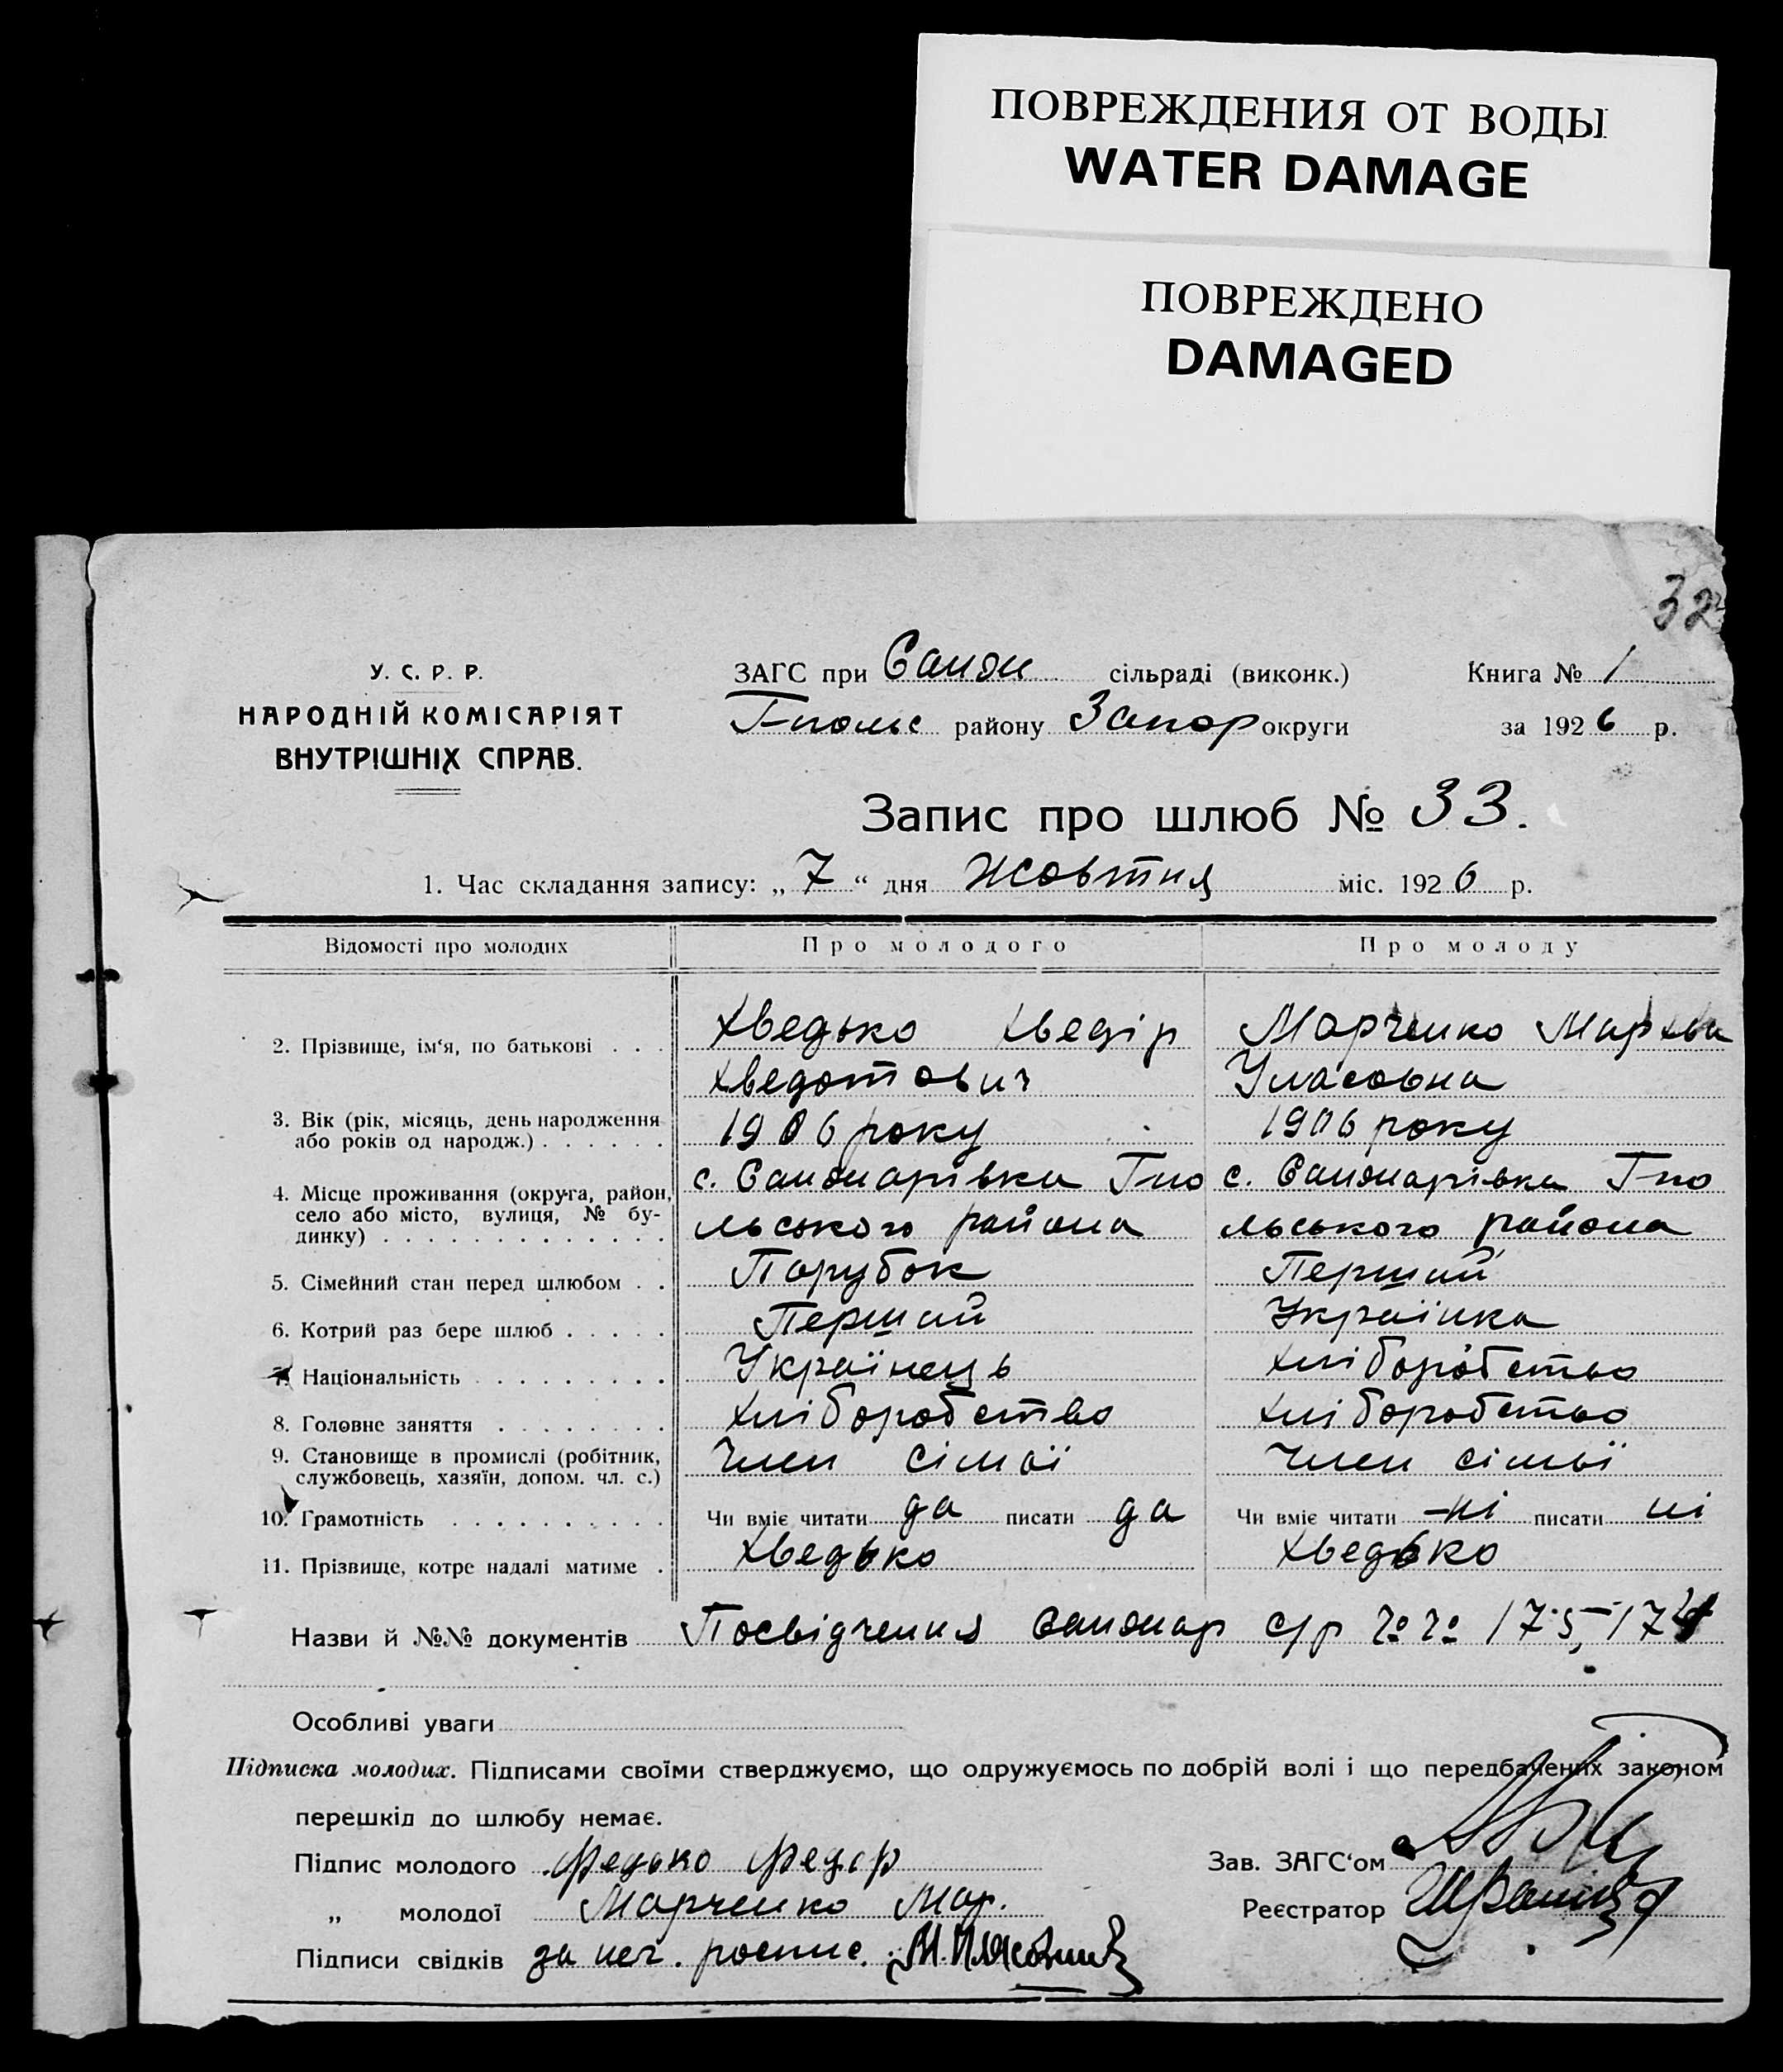 ПОВРЕЖДЕНИЯ ОТ ВОДЫ
WATER DAMAGE
ПОВРЕЖДЕНО
DAMAGED
32
У. С. Р. Р.
НАРОДНІЙ КОМІСАРІЯТ
ВНУТРІШНІХ СПРАВ.
ЗАГС при Санжи сільраді (виконк.) Книга № 1
Г-польс району Запор округи за 1926 р.
Запис про шлюб № 33.
1. Час складання запису: „ 7 “ дня Жовтня міс. 1926 р.
Відомості про молодих Про молодого Про молоду
2. Прізвище, ім‘я, по батькові . . . Хведько Хведір Марченко Мархва
Хведотович Уласовна
3. Вік (рік, місяць, день народження 1906 року 1906 року
або років од народж.) . . . . . .
4. Місце проживання (округа, район, с. Санжарівка Г-по с. Санжарівка Г-по
село або місто, вулиця, № бу-
динку) . . . . . . . . . . . . . льського района льського района
5. Сімейний стан перед шлюбом . . Парубок Перший
6. Котрий раз бере шлюб . . . . . Перший Українка
7. Національність . . . . . . . . . Українець хліборобство
8. Головне заняття . . . . . . . . хліборобство хліборобство
9. Становище в промислі (робітник, Член сімьї Член сімьї
службовець, хазяїн, допом. чл. с.)
10. Грамотність . . . . . . . . . . Чи вміє читати да писати да Чи вміє читати -ні писати ні
11. Прізвище, котре надалі матиме . Хведько Хведько
Назви й №№ документів Посвідчення Санжар с/р №№ 175, 174
Особливі уваги
Підписка молодих. Підписами своїми стверджуємо, що одружуємось по добрій волі і що передбачених законом
перешкід до шлюбу немає.
Підпис молодого Федько Федор Зав. ЗАГС‘ом
„ молодої Марченко Мар. Реєстратор
Підписи свідків за неч. роспис.